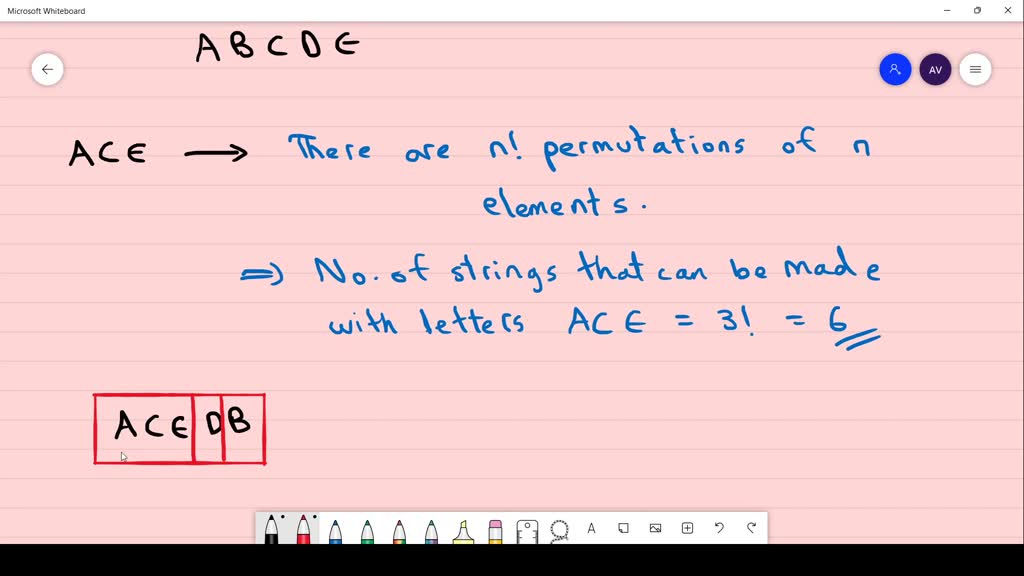 Microsoft Whiteboard
A B C D E
AV
ACE → There are n! permutations of n
elements.
⇒ No. of strings that can be made
with letters ACE = 3! = 6
ACE D B
A